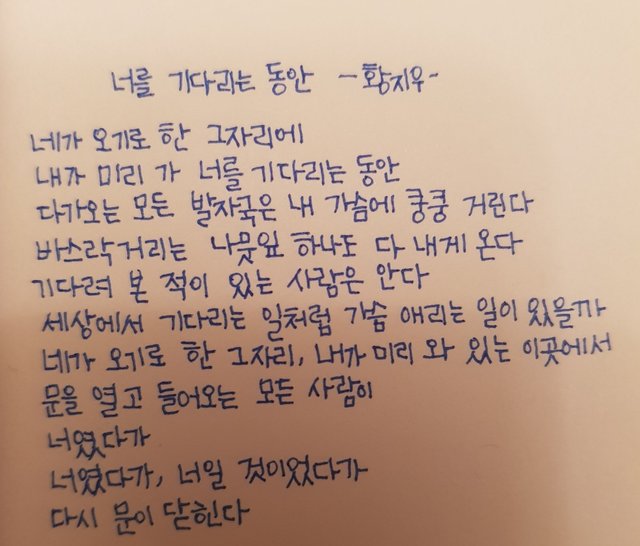 너를 기다리는 동안 -황지우-
네가 오기로 한 그자리에
내가 미리 가 너를 기다리는 동안
다가오는 모든 발자국은 내 가슴에 쿵쿵 거린다
바스락거리는 나뭇잎 하나도 다 내게 온다
기다려 본 적이 있는 사람은 안다
세상에서 기다리는 일처럼 가슴 애리는 일이 있을까
네가 오기로 한 그자리, 내가 미리 와 있는 이곳에서
문을 열고 들어오는 모든 사람이
너였다가
너였다가, 너일 것이었다가
다시 문이 닫힌다